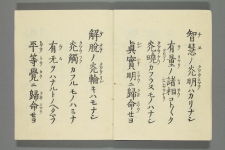 智慧ノ光明ハカリナシ
有量ノ諸相コト〱ク
光曉カフラヌモノハナシ
眞實明ニ歸命セヨ
解脫ノ光輪キハモナシ
光觸カフルモノハミナ
有无ヲハナルトノヘタマフ
平等覺ニ歸命セヨ